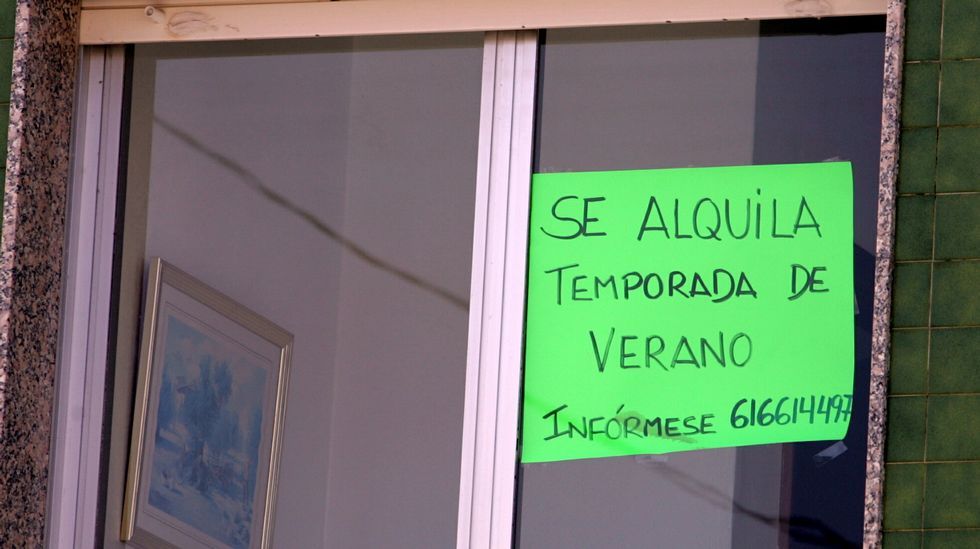 SE ALQUILA
TEMPORADA DE
VERANO
INFÓRMESE 616614497